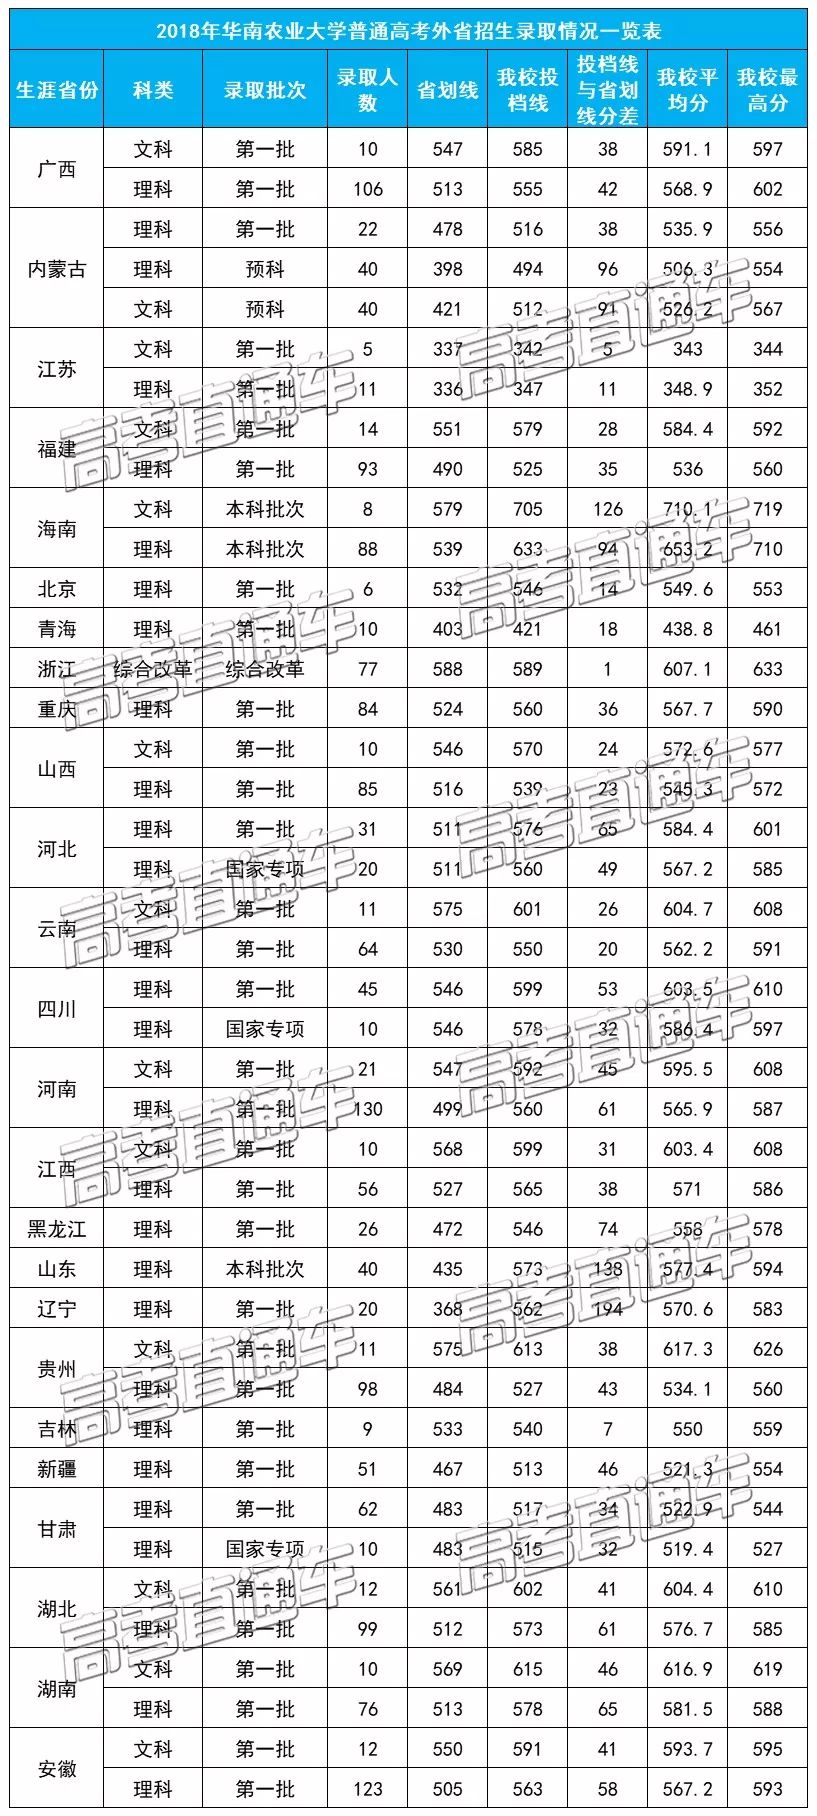 2018年华南农业大学普通高考外省招生录取情况一览表
生涯省份 科类 录取批次 录取人数 省划线 我校投档线 投档线与省划线分差 我校平均分 我校最高分
广西 文科 第一批 10 547 585 38 591.1 597
理科 第一批 106 513 555 42 568.9 602
内蒙古 理科 第一批 22 478 516 38 535.9 556
理科 预科 40 398 494 96 506.3 554
文科 预科 40 421 512 91 526.2 567
江苏 文科 第一批 5 337 342 5 343 344
理科 第一批 11 336 347 11 348.9 352
福建 文科 第一批 14 551 579 28 584.4 592
理科 第一批 93 490 525 35 536 560
海南 文科 本科批次 8 579 705 126 710.1 719
理科 本科批次 88 539 633 94 653.2 710
北京 理科 第一批 6 532 546 14 549.6 553
青海 理科 第一批 10 403 421 18 438.8 461
浙江 综合改革 综合改革 77 588 589 1 607.1 633
重庆 理科 第一批 84 524 560 36 567.7 590
山西 文科 第一批 10 546 570 24 572.6 577
理科 第一批 85 516 539 23 545.3 572
河北 理科 第一批 31 511 576 65 584.4 601
理科 国家专项 20 511 560 49 567.2 585
云南 文科 第一批 11 575 601 26 604.7 608
理科 第一批 64 530 550 20 562.2 591
四川 理科 第一批 45 546 599 53 603.5 610
理科 国家专项 10 546 578 32 586.4 597
河南 文科 第一批 21 547 592 45 595.5 608
理科 第一批 130 499 560 61 565.9 587
江西 文科 第一批 10 568 599 31 603.4 608
理科 第一批 56 527 565 38 571 586
黑龙江 理科 第一批 26 472 546 74 558 578
山东 理科 本科批次 40 435 573 138 577.4 594
辽宁 理科 第一批 20 368 562 194 570.6 583
贵州 文科 第一批 11 575 613 38 617.3 626
理科 第一批 98 484 527 43 534.1 560
吉林 理科 第一批 9 533 540 7 550 559
新疆 理科 第一批 51 467 513 46 521.3 554
甘肃 理科 第一批 62 483 517 34 522.9 544
理科 国家专项 10 483 515 32 519.4 527
湖北 文科 第一批 12 561 602 41 604.4 610
理科 第一批 99 512 573 61 576.7 585
湖南 文科 第一批 10 569 615 46 616.9 619
理科 第一批 76 513 578 65 581.5 588
安徽 文科 第一批 12 550 591 41 593.7 595
理科 第一批 123 505 563 58 567.2 593
高考直通车
高考直通车
高考直通车
高考直通车
高考直通车
高考直通车
高考直通车
高考直通车
高考直通车
高考直通车
高考直通车
高考直通车